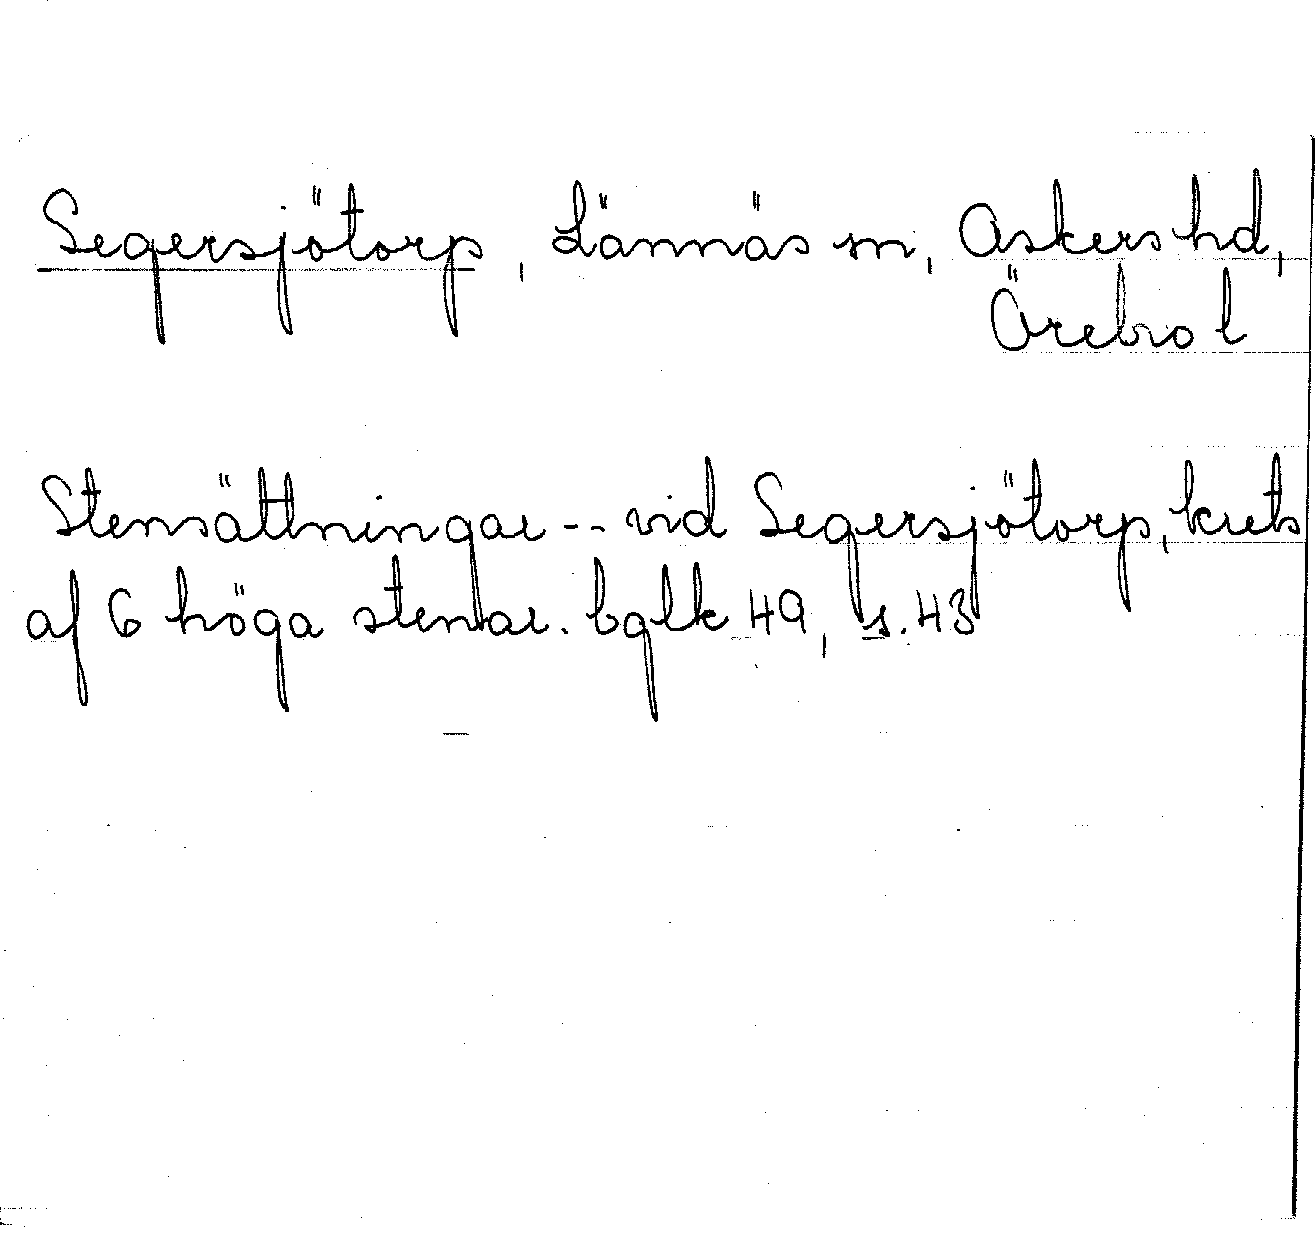 Segersjötorp, Lännäs sn, Askers hd,
Örebro l
Stensättningar -- vid Segersjötorp, krets
af 6 höga stenar. bglk 49, s. 43